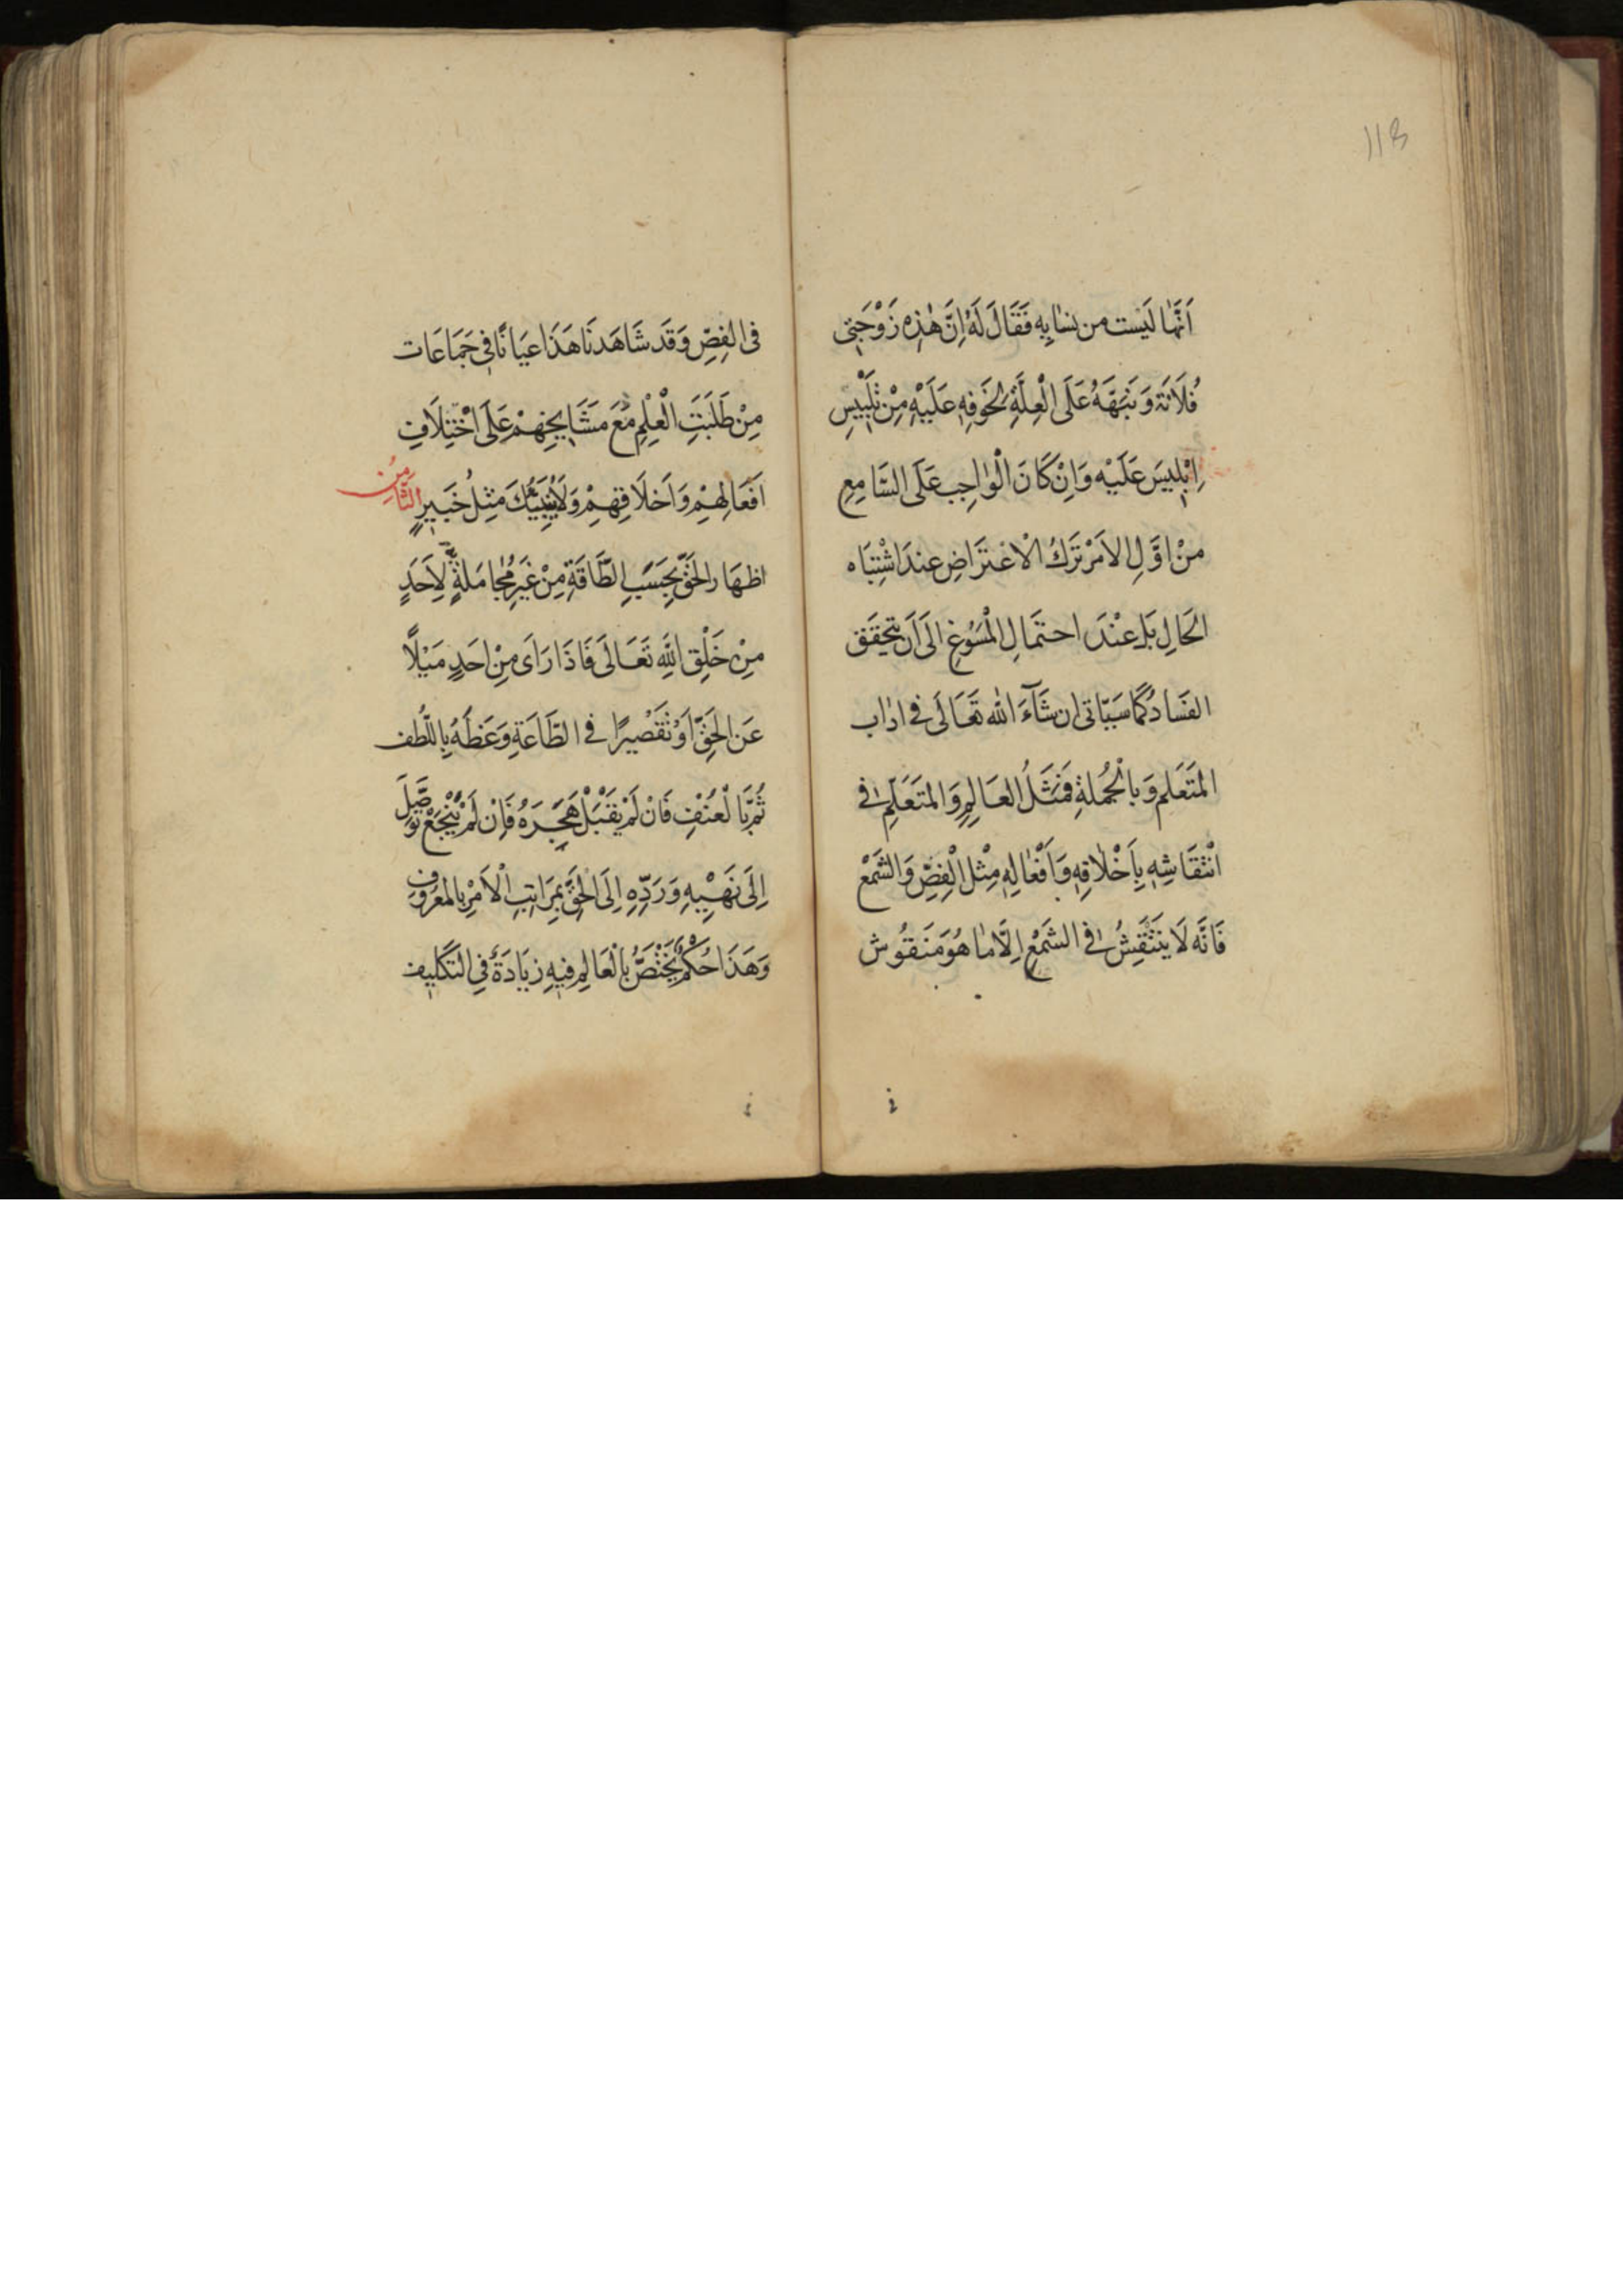 113
اَنَّهٰا لَيْسَت من نِسٰايِه فَقَالَ لَهُ اِنَّ هٰذِهِ زَوْجَتِى
فُلَانَة وَنَبَّهَهُ عَلَى الْعِلَّةِ لِخَوفِهِ عَلَيْهِ مِنْ تَلْبِيْسِ
اِبْلِيْسَ عَلَيْه وَاِنْ كَانَ الْوٰاجِب عَلَى السَّامِعِ
مِنْ اوَّلِ الاَمْرْ تَرْكُ الْاعْتَرَاضِ عِندَ اشْتِبَاه
الحَالِ بَل عِنْدَ احتمَالِ الْمسَوُغِ الَى اَن يتحَقَقَ
الفَسَادُ كَمٰا سَيَاتى ان شَآءَ الله تَعَالَى فى ادٰاب
المتَعَلم وَبالْجُملةِ فمَثَلُ العَالِمِ وَالمتَعَلّم فى
انْتِقَاشِه بِاَخْلٰاقِهِ وَاَفْعٰالِهِ مِثْل الْفِصِّ وَالشَمْعْ
فَانَّه لَا يَنتَقِشُ فى الشَمْعِ اِلَّا مٰا هُوَ مَنقُوش
فى الفِصِّ وَقَد شَاهَدنَا هَذَا عيَانًا فى جَمَاعَات
مِنْ طَلَبَتِ الْعِلْمِ مَعَ مَشَايِخِهِمْ عَلَى اخْتِلَافِ
اَفعَالِهِمْ وَاَخلَاقِهِمْ وَلَا يُنَبِّئُكَ مثِلُ خَبيرٍ الثَّامِنُ
اظهَار الحَقِّ بِحَسَبِ الطَّاقَةِ مِنْ غَيرِ مُجٰامَلةٍ لِاَحَدٍ
مِنْ خَلْقِ اللّهِ تَعَالَى فَاذَا رَاَى مِنْ احَدٍ مَيْلًا
عَن الحَقِّ اَوْ تَقْصْيرًا فى الطَّاعَةِ وَعَظَهُ بِاللُّطف
ثُمَّ بَالْعُنْفِ فَانْ لَمْ يَقْبَلْ هَجَرَهُ فَاِنْ لَمْ يَنْجَعْ تَوَصَّلَ
اِلَى نَهْيِهِ وَرَدِّهِ اِلَى الْحَقِّ بمَرَاتِبِ الْاَمْرِ بالمَعرُوفِ
وَهَذَا حُكْمٌ يَخْتَصُّ بالْعَالِمِ فيهِ زيَادَةٌ فِى التَكْليِفِ